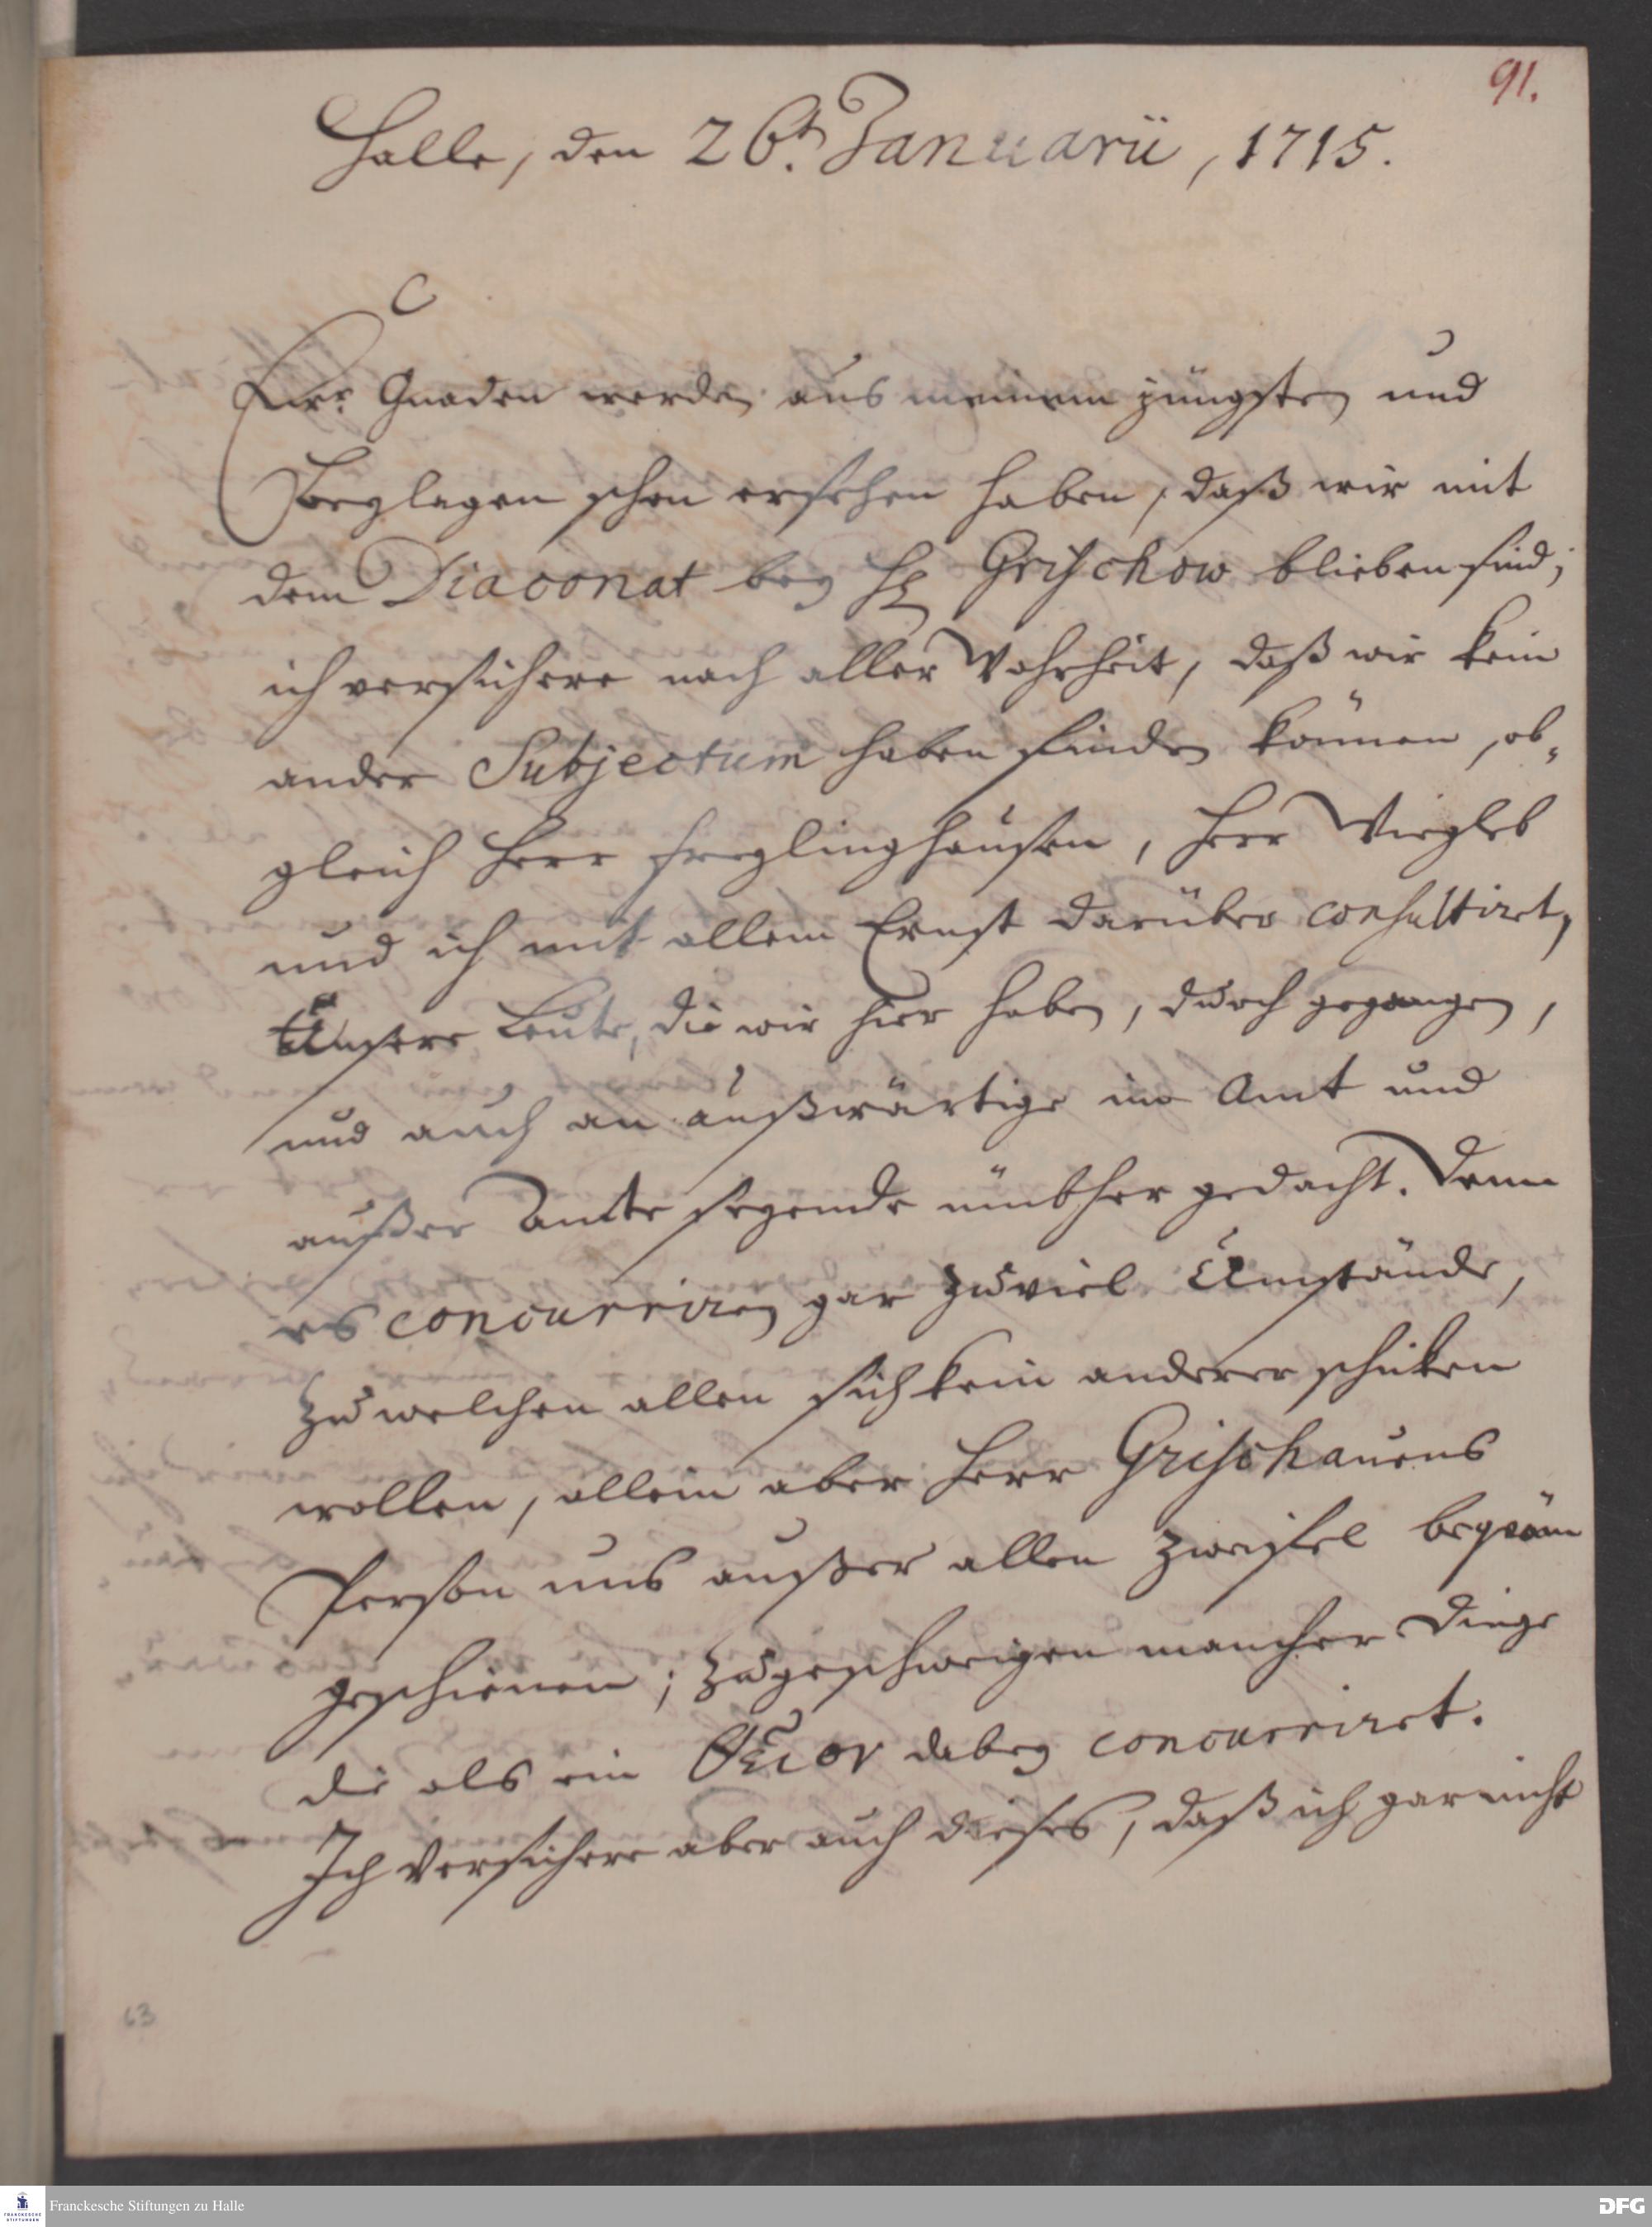 91.
Halle, den 26.t Januarii, 1715.
Ewr. Gnaden werden aus meinem jüngsten und
Beylagen schon ersehen haben, daß wir mit
dem Diaconat bey H Grischow blieben sind;
ich versichere nach aller Wahrheit, daß wir kein
ander Subjectum haben finden können, ob-
gleich Herr Freylinghausen, Herr Wiegleb
und ich mit allem Ernst darüber consultiret,
Unsere Leute, die wir hier haben, durch gegangen,
und auch an außwärtige im Amt und
außer Amte seyende umbher gedacht. Denn
es concurriren gar zu viel Umstände,
zu welchen allen sich kein anderer schicken
wollen, allein aber Herr Grischauens
Person uns außer allen Zweifel beqväm
geschienen; zugeschweigen mancher Dinge
die als ein dabey concurriret.
Ich versichere aber auch dieses, daß ich gar nicht
63
Franckesche Stiftungen zu Halle
DFG